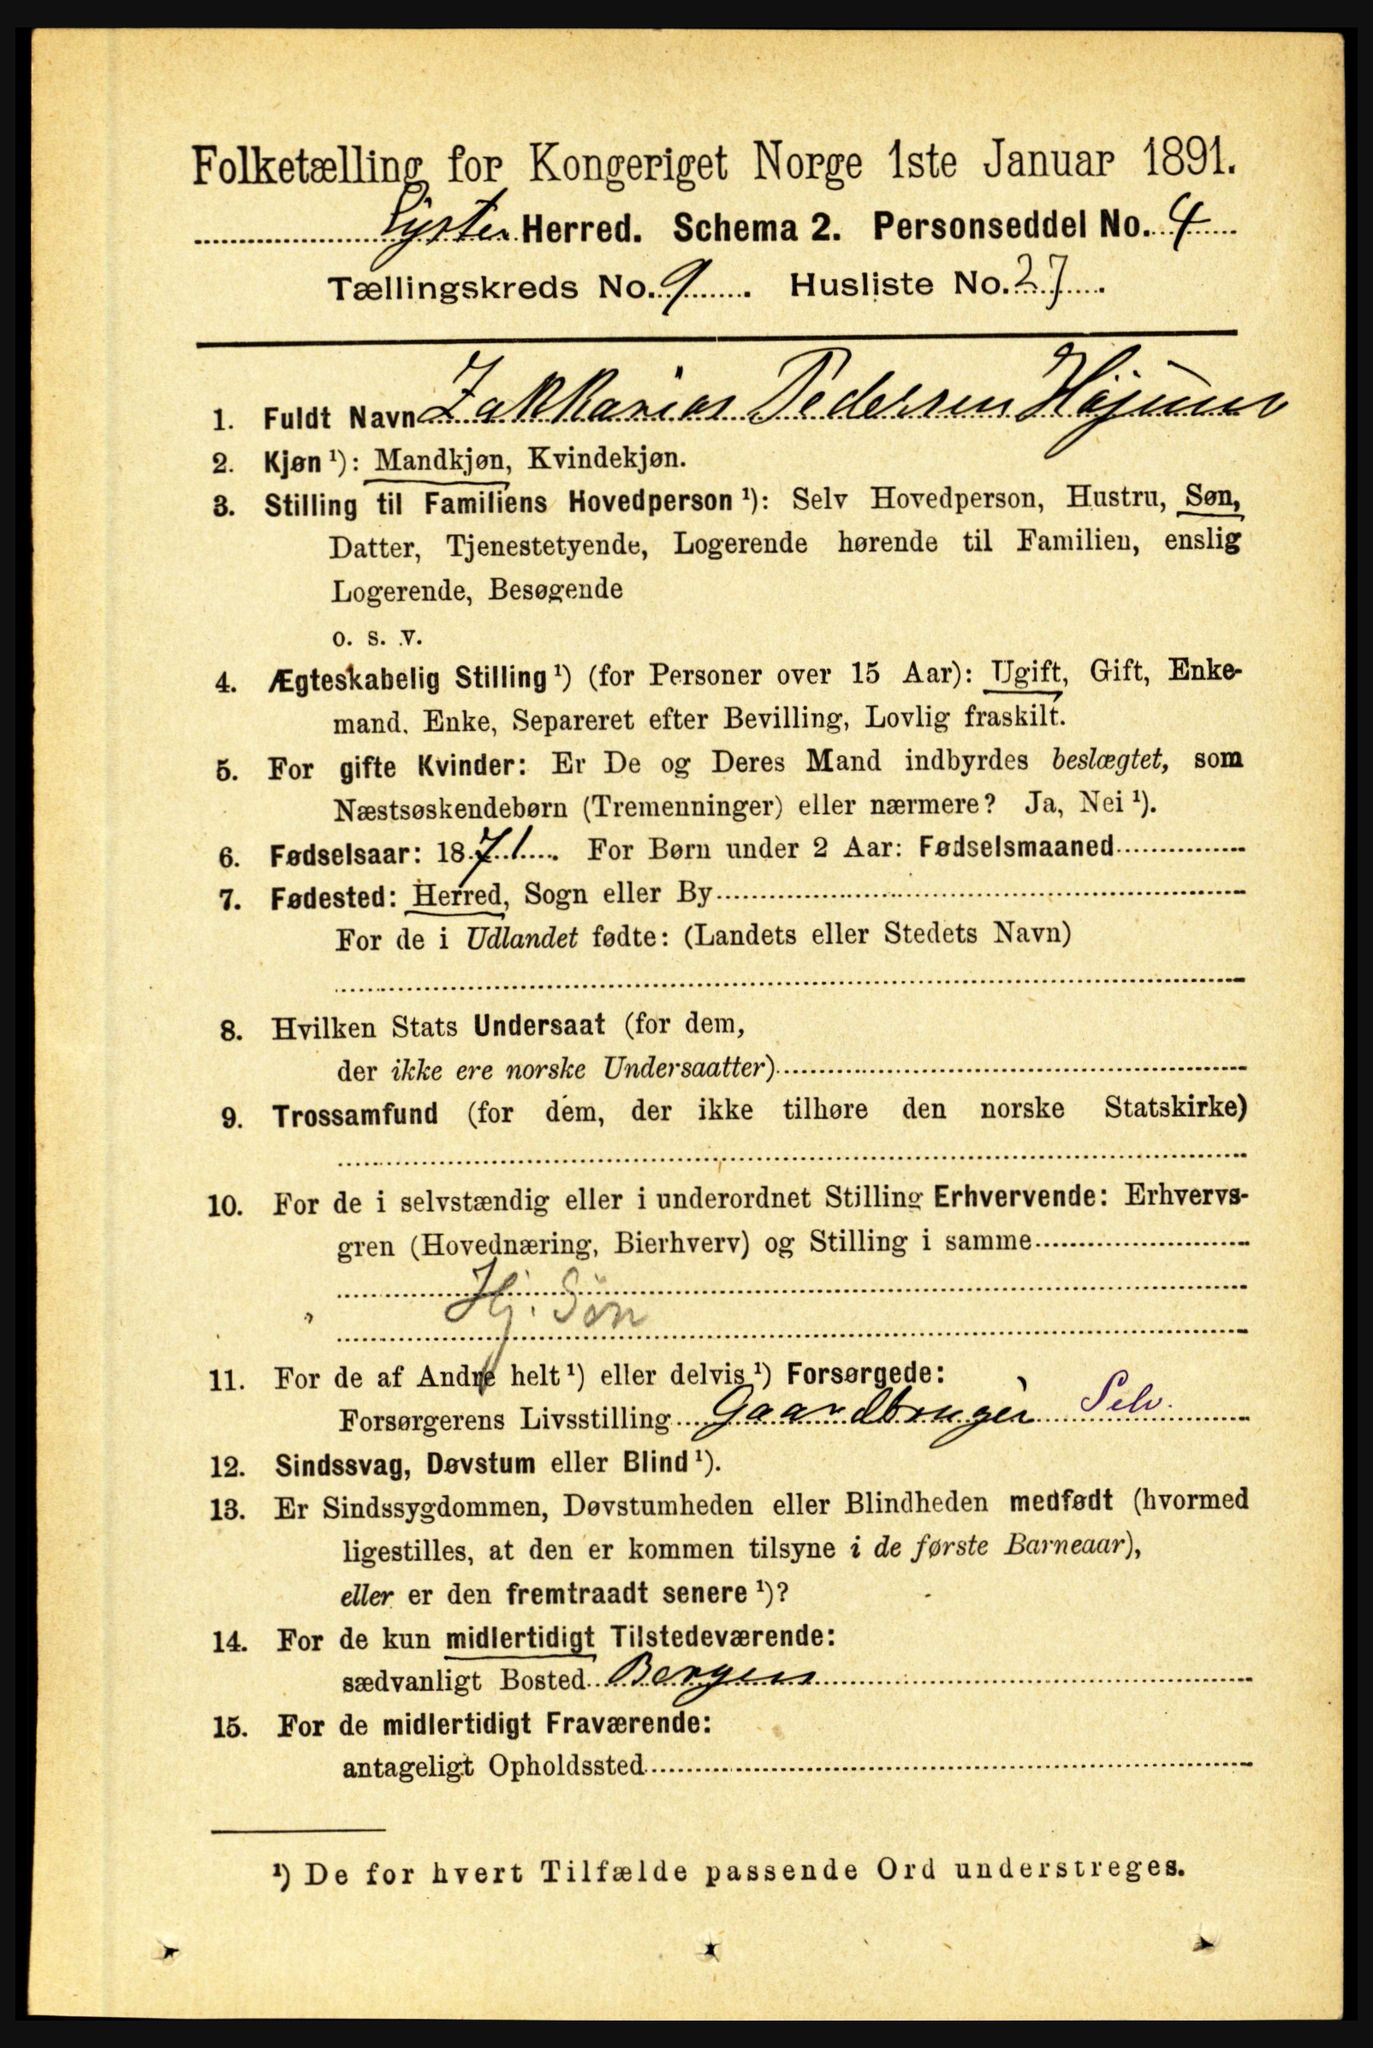 Folketælling for Kongeriget Norge 1ste Januar 1891.
Lyster Herred. Schema 2. Personseddel No. 4
Tællingskreds No. 9. Husliste No. 27.
1. Fuldt Navn Zakkarias Pedersen Højum
2. Kjøn ¹): Mandkjøn, Kvindekjøn.
3. Stilling til Familiens Hovedperson ¹): Selv Hovedperson, Hustru, Søn,
Datter, Tjenestetyende, Logerende hørende til Familien, enslig
Logerende, Besøgende
o. s. v.
4. Ægteskabelig Stilling ¹) (for Personer over 15 Aar): Ugift, Gift, Enke-
mand, Enke, Separeret efter Bevilling, Lovlig fraskilt.
5. For gifte Kvinder: Er De og Deres Mand indbyrdes beslægtet, som
Næstsøskendebørn (Tremenninger) eller nærmere? Ja, Nei ¹).
6. Fødselsaar: 1871. For Børn under 2 Aar: Fødselsmaaned
7. Fødested: Herred, Sogn eller By
For de i Udlandet fødte: (Landets eller Stedets Navn)
8. Hvilken Stats Undersaat (for dem,
der ikke ere norske Undersaatter)
9. Trossamfund (for dem, der ikke tilhøre den norske Statskirke)
10. For de i selvstændig eller i underordnet Stilling Erhvervende: Erhvervs-
gren (Hovednæring, Bierhverv) og Stilling i samme
Hj. Søn
11. For de af Andre helt ¹) eller delvis ¹) Forsørgede:
Forsørgerens Livsstilling Gaardbruger Selv.
12. Sindssvag, Døvstum eller Blind ¹).
13. Er Sindssygdommen, Døvstumheden eller Blindheden medfødt (hvormed
ligestilles, at den er kommen tilsyne i de første Barneaar),
eller er den fremtraadt senere ¹)?
14. For de kun midlertidigt Tilstedeværende:
sædvanligt Bosted Bergen
15. For de midlertidigt Fraværende:
antageligt Opholdssted
¹) De for hvert Tilfælde passende Ord understreges.